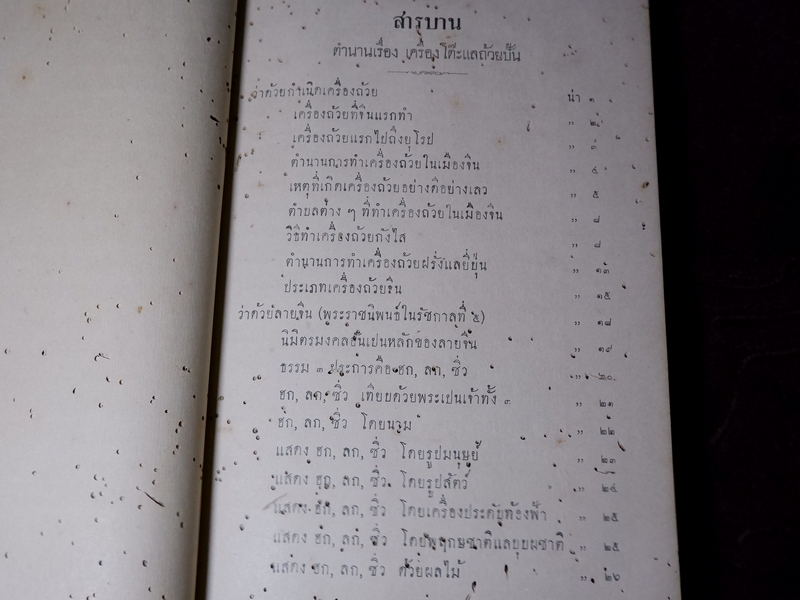 สารบาน
ตำนานเรื่อง เครื่องโต๊ะแลถ้วยปั้น
ว่าด้วยกำเนิดเครื่องถ้วย น่า ๑
เครื่องถ้วยที่จีนแรกทำ ,, ๒
เครื่องถ้วยแรกไปถึงยุโรป ,, ๓
ตำนานการทำเครื่องถ้วยในเมืองจีน ,, ๔
เหตุที่เกิดเครื่องถ้วยอย่างดีอย่างเลว ,, ๕
ตำบลต่าง ๆ ที่ทำเครื่องถ้วยในเมืองจีน ,, ๘
วิธีทำเครื่องถ้วยกังไส ,, ๘
ตำนานการทำเครื่องถ้วยฝรั่งแลยี่ปุ่น ,, ๑๓
ประเภทเครื่องถ้วยจีน ,, ๑๕
ว่าด้วยลายจีน (พระราชนิพนธ์ในรัชกาลที่ ๕) ,, ๑๘
นิมิตรมงคลอันเปนหลักของลายจีน ,, ๑๙
ธรรม ๓ ประการคือ ฮก, ลก, ซิ่ว ,, ๒๐
ฮก, ลก, ซิ่ว เทียบด้วยพระเปนเจ้าทั้ง ๓ ,, ๒๑
ฮก, ลก, ซิ่ว โดยนาม ,, ๒๒
แสดง ฮก, ลก, ซิ่ว โดยรูปมนุษย์ ,, ๒๓
แสดง ฮก, ลก, ซิ่ว โดยรูปสัตว์ ,, ๒๔
แสดง ฮก, ลก, ซิ่ว โดยเครื่องประดับท้องฟ้า ,, ๒๕
แสดง ฮก, ลก, ซิ่ว โดยพฤกษชาติแลบุบผชาติ ,, ๒๕
แสดง ฮก, ลก, ซิ่ว ด้วยผลไม้ ,, ๒๖